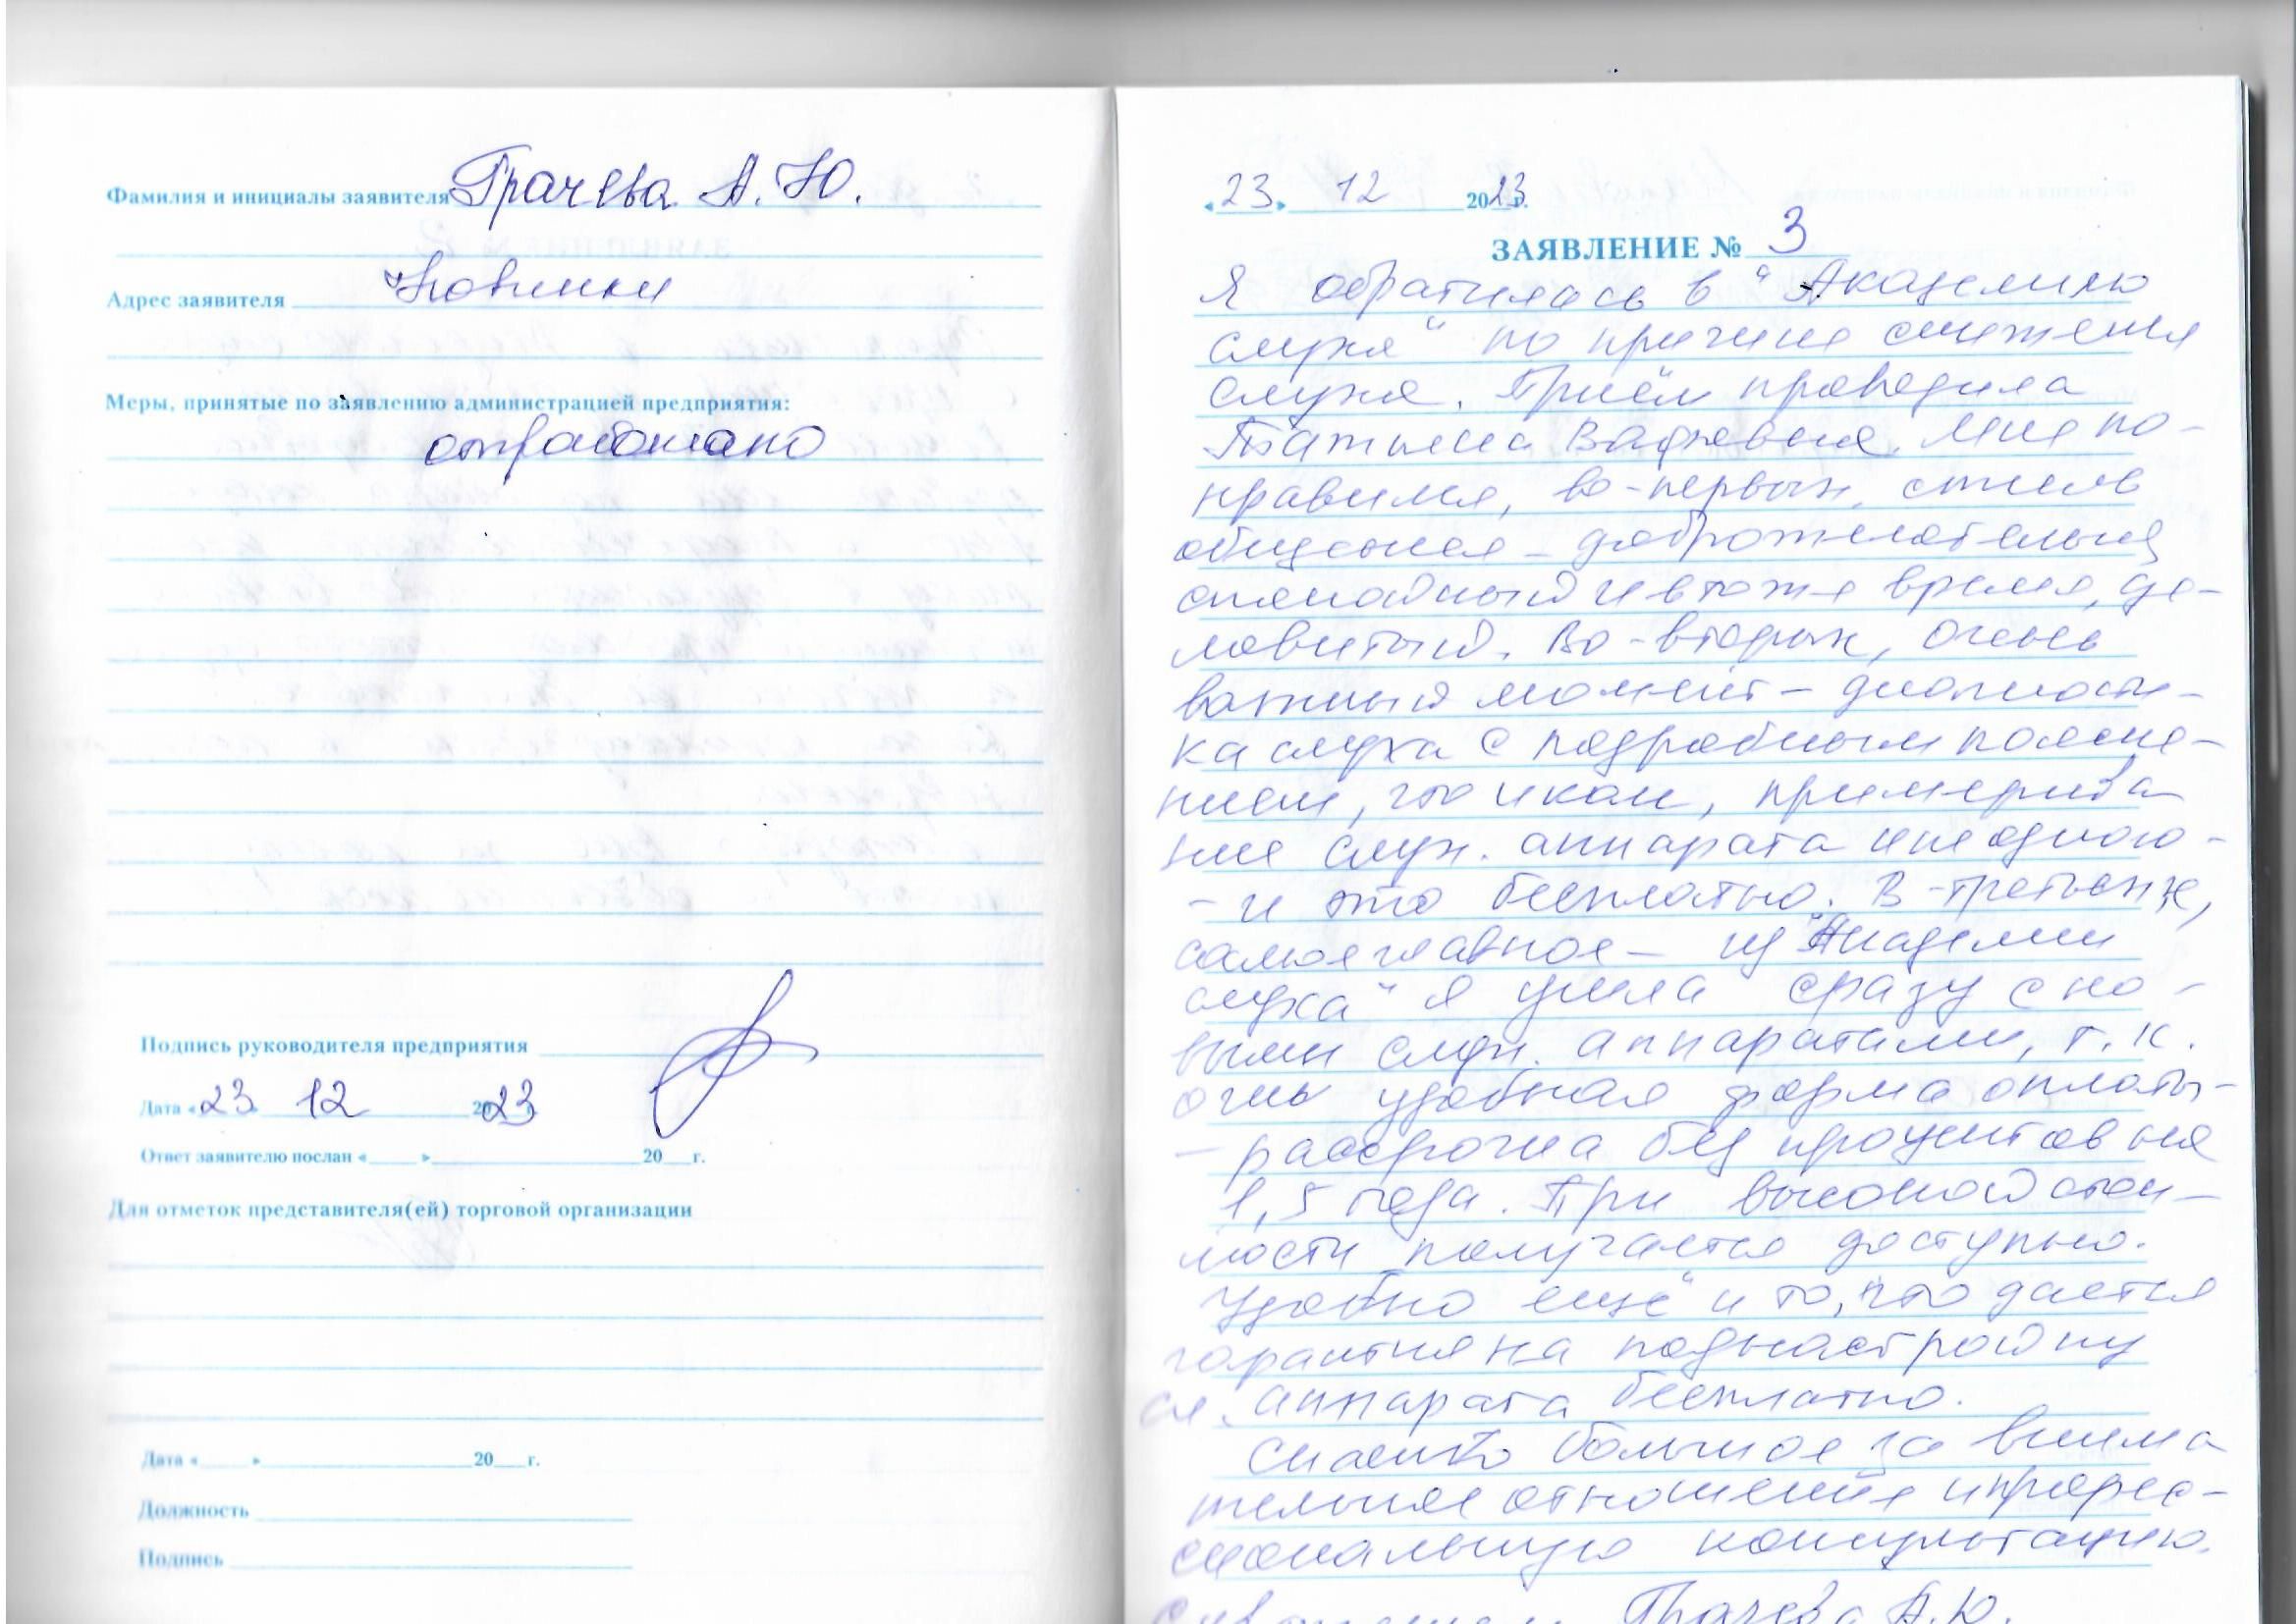 Фамилия и инициалы заявителя Грачева А. Ю.
Адрес заявителя Новинки
Меры, принятые по заявлению администрацией предприятия:
отработано
Подпись руководителя предприятия
Дата «23» 12 2023
Ответ заявителю послан « » 20 г.
Для отметок представителя(ей) торговой организации
Дата « » 20 г.
Должность
Подпись
«23» 12 2023 г.
ЗАЯВЛЕНИЕ № 3
Я обратилась в "Академию
слуха" по причине снижения
слуха. Приём проводила
Татьяна Мне по-
нравился, во-первых, стиль
общения – доброжелательный
спокойный и в тоже время, де-
ловитый. Во-вторых, очень
важный момент – диагности-
ка слуха с подробным поясне-
нием, что и как, примерива
ние слух. аппарата и не одного-
- и это бесплатно. В-третьих,
самое главное – из "Академии
слуха" я ушла сразу с но-
выми слух. аппаратами, т. к.
очень удобная форма оплаты-
– рассрочка без процентов на
1,5 года. При высокой стои-
мости получается доступно.
Удобно ещё и то, что дается
гарантия на поднастройку
сл. аппарата бесплатно.
Спасибо большое за внима
тельное отношение и профес-
сиональную консультацию.
С уважением Грачева А.Ю.